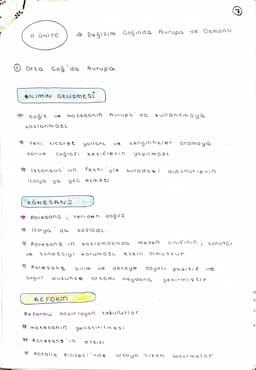 7
II. ÜNİTE → Değişim Çağında Avrupa ve Osmanlı
1 Orta Çağ'da Avrupa
BİLİMİN GELİŞMESİ
* Kağıt ve matbaanın Avrupa'da kullanılmaya
başlanması
* Yeni ticaret yolları ve zenginlikler aramaya
Coğrafi keşiflerin yapılması
* İstanbul'un fethi ile buradaki düşünürlerin
İtalya'ya göç etmesi
RÖNESANS
* Rönesans, yeniden doğuş
* İtalya'da başladı.
* Rönesans'ın başlamasında mesen sınıfının, sanatçı
ve sanatçıyı koruması etkili olmuştur
* Rönesans bilim ve deneye dayalı pozitif ve
özgür düşünce ortamı meydana getirmiştir
REFORM
Reformu hazırlayan koşullar
* matbaanın geliştirilmesi
* Rönesans'ın etkisi
* Katolik Kilisesi'nde ortaya çıkan bozulmalar